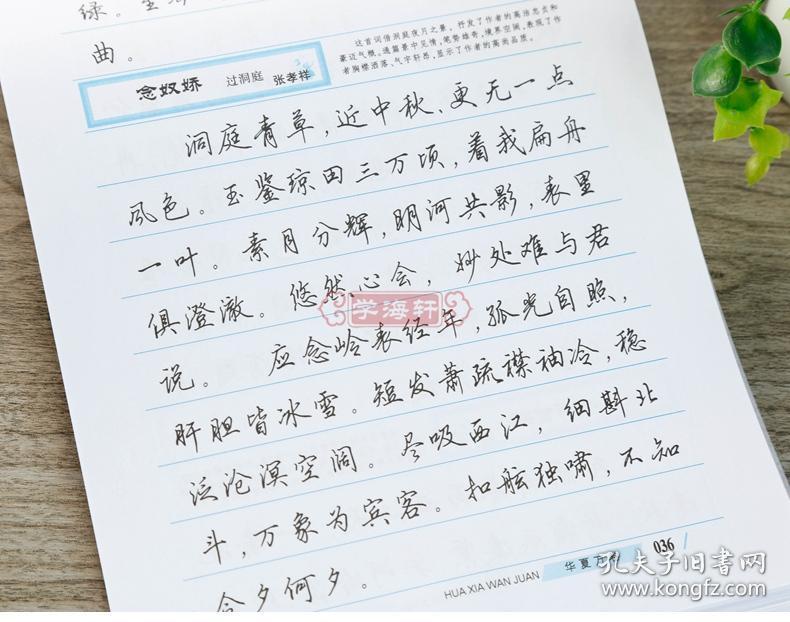 绿。
曲。
这首词借洞庭夜月之景，抒发了作者的高洁忠贞和
豪迈气概。通篇景中见情，笔势雄奇，境界空阔，表现了作
者胸襟洒落、气宇轩昂，显示了作者的高尚品质。
念奴娇 过洞庭 张孝祥
洞庭青草，近中秋、更无一点
风色。玉鉴琼田三万顷，着我扁舟
一叶。素月分辉，明河共影，表里
俱澄澈。悠然心会，妙处难与君
说。 应念岭表经年，孤光自照，
肝胆皆冰雪。短发萧疏襟袖冷，稳
泛沧溟空阔。尽吸西江，细斟北
斗，万象为宾客。扣舷独啸，不知
今夕何夕。
学海轩
HUA XIA WAN JUAN 华夏万卷 036
孔夫子旧书网
www.kongfz.com